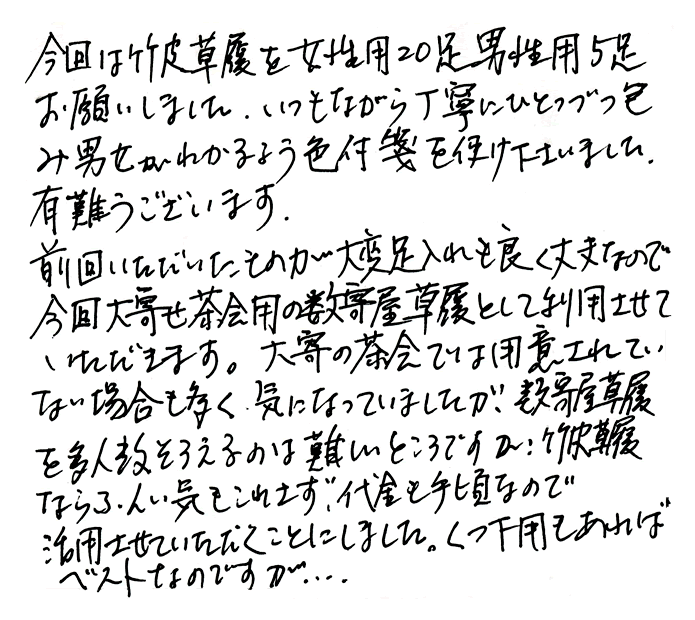 今回は竹皮草履を女性用20足男性用5足
お願いしました.いつもながら丁寧にひとつづつ包
み男女がわかるよう色付箋を使け下さいました.
有難うございます.
前回いただいたものが大変足入れも良く丈夫なので
今回大寄せ茶会用の数寄屋草履として利用させて
いただきます。大寄の茶会では用意されてい
ない場合も多く、気になっていましたが、数寄屋草履
を多人数そろえるのは難しいところですが:竹皮草履
ならふんい気もこわさず、代金も手頃なので
活用させていただくことにしました。くつ下用もあれば
ベストなのですが....